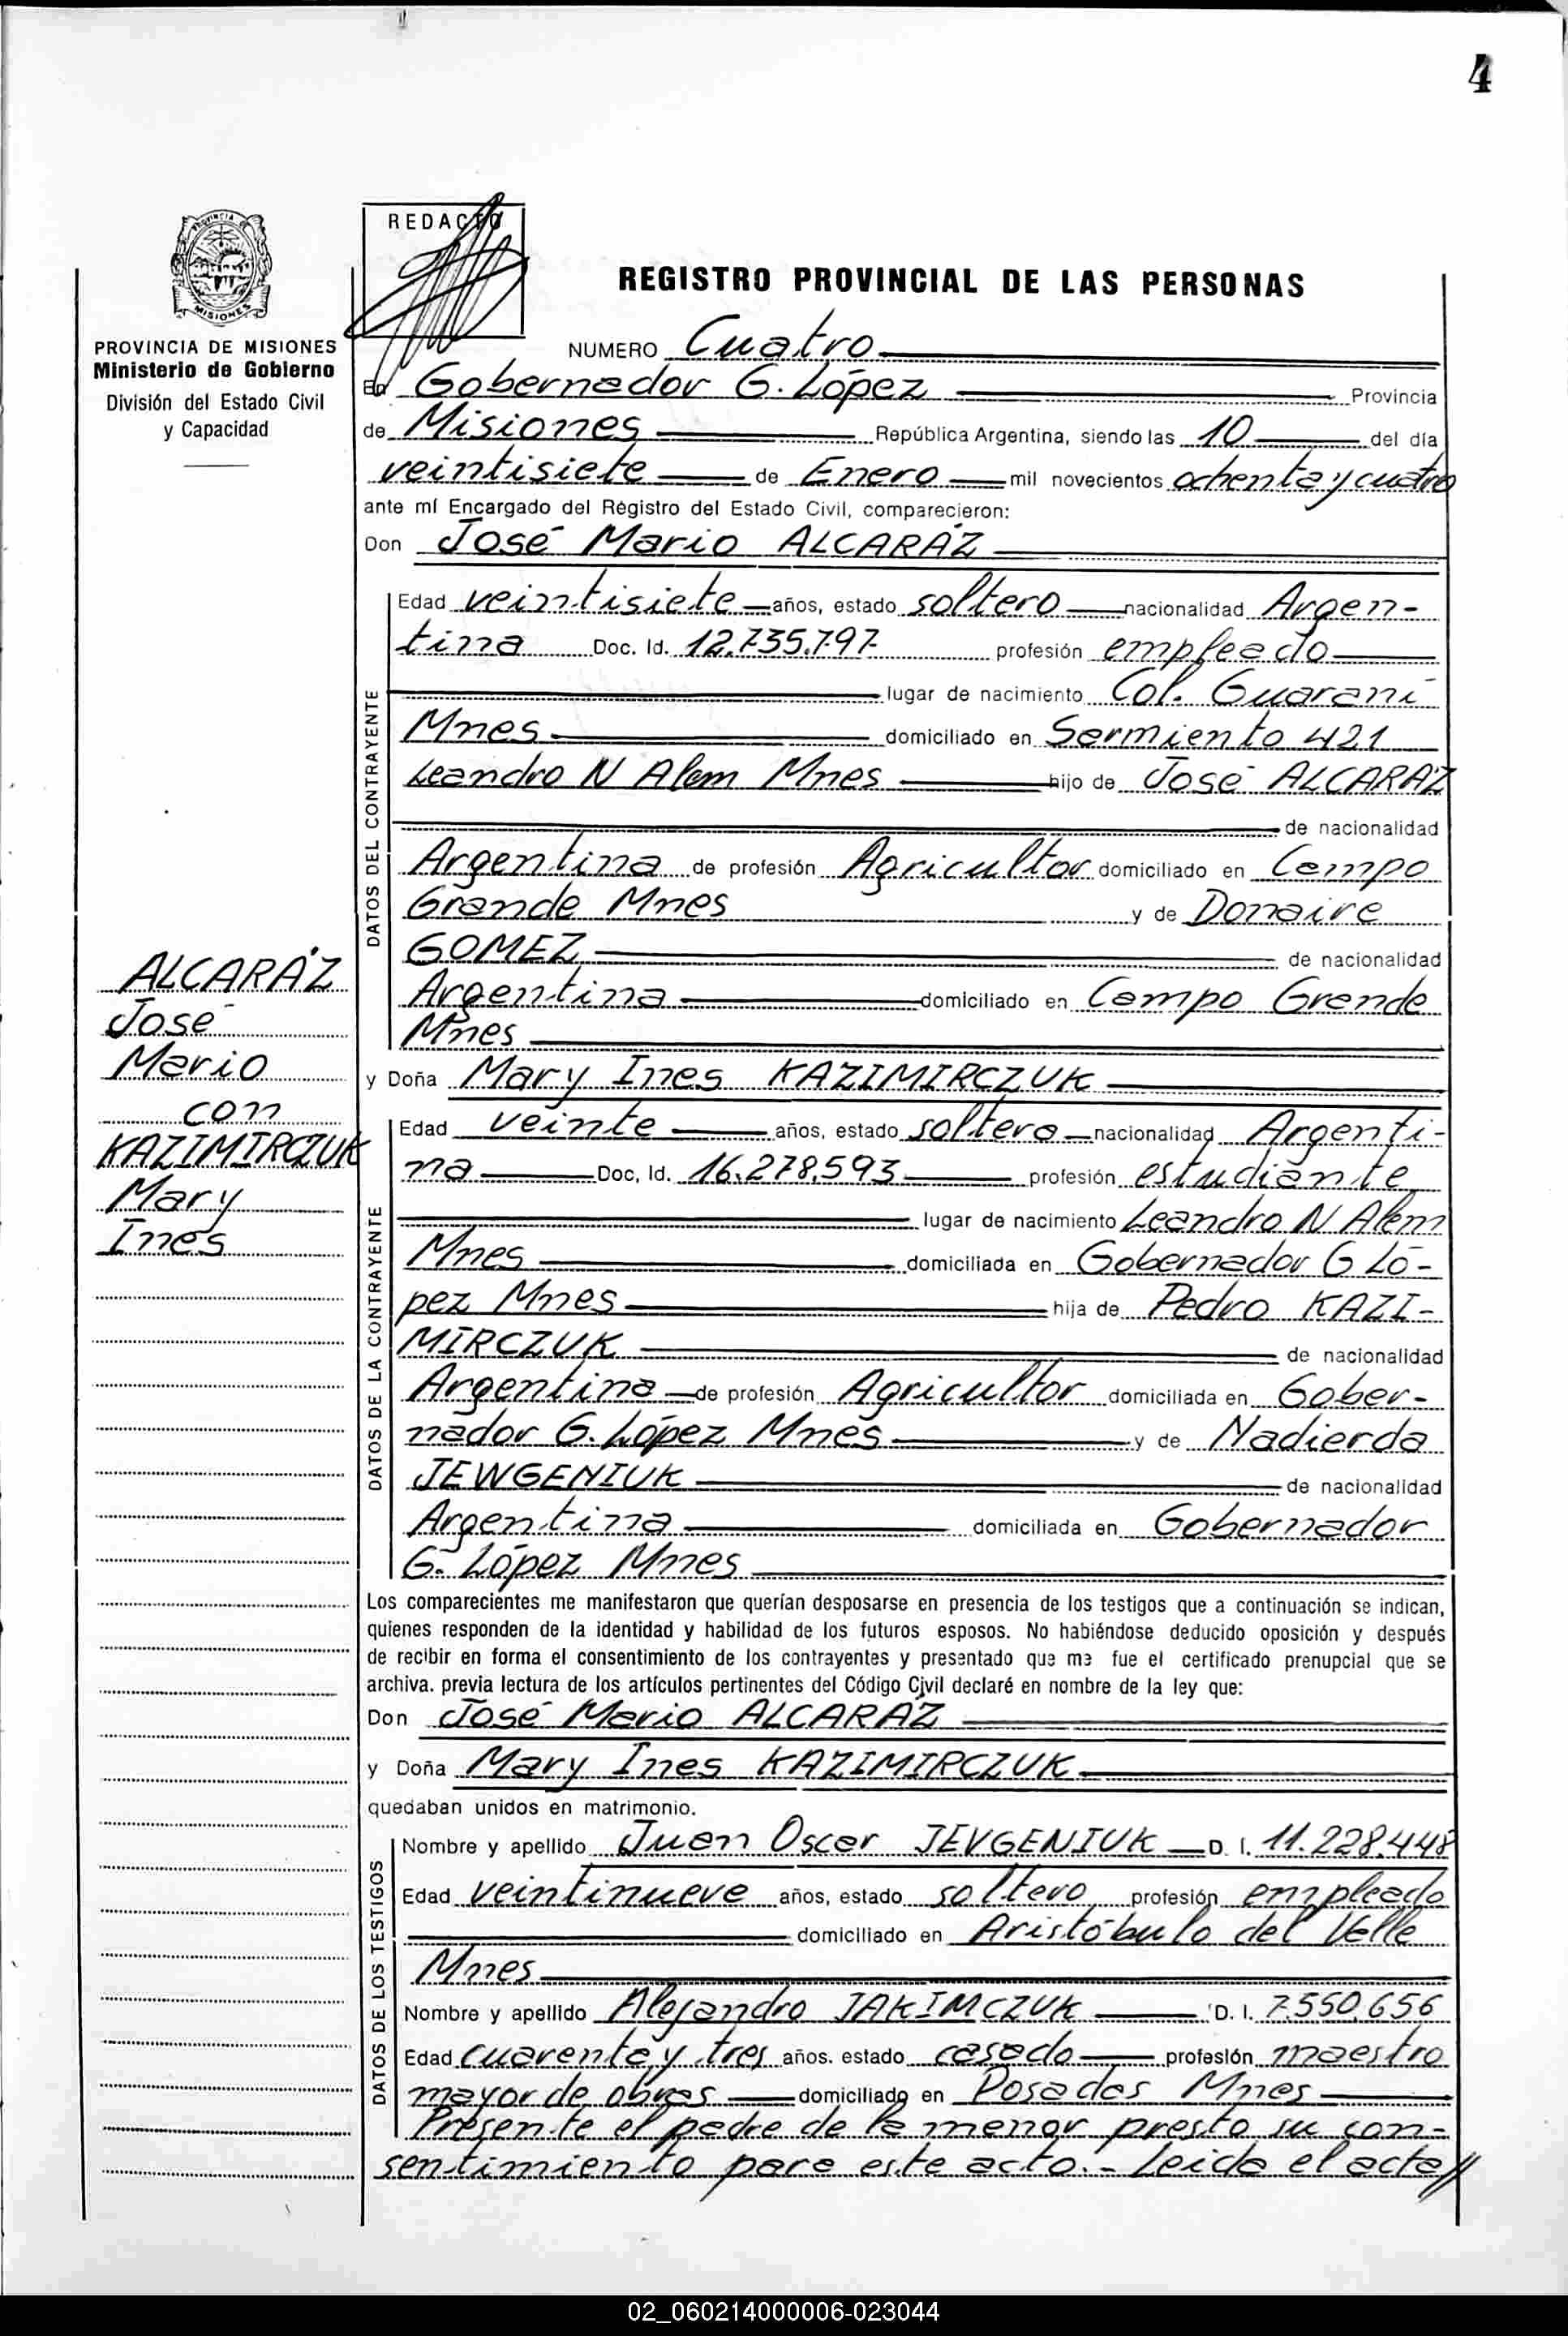 4
PROVINCIA DE
MISIONES
REDACTO
REGISTRO PROVINCIAL DE LAS PERSONAS
PROVINCIA DE MISIONES
Ministerio de Gobierno
División del Estado Civil
y Capacidad
NUMERO Cuatro
En Gobernador G. López Provincia
de Misiones República Argentina, siendo las 10 del día
veintisiete de Enero mil novecientos ochenta y cuatro
ante mí Encargado del Registro del Estado Civil, comparecieron:
Don José Mario ALCARÁZ
DATOS DEL CONTRAYENTE
Edad veintisiete años, estado soltero nacionalidad Argen-
tina Doc. Id. 12.735.797 profesión empleado
lugar de nacimiento Col. Guaraní
Mnes domiciliado en Sarmiento 421
Leandro N Alem Mnes hijo de José ALCARÁZ
de nacionalidad
Argentina de profesión Agricultor domiciliado en Campo
Grande Mnes y de Donaire
GOMEZ de nacionalidad
Argentina domiciliado en Campo Grande
Mnes
ALCARÁZ
José
Mario
con
KAZIMIRCZUK
Mary
Ines
y Doña Mary Ines KAZIMIRCZUK
DATOS DE LA CONTRAYENTE
Edad veinte años, estado soltera nacionalidad Argenti-
na Doc, Id. 16.278.593 profesión estudiante
lugar de nacimiento Leandro N Alem
Mnes domiciliada en Gobernador G Ló-
pez Mnes hija de Pedro KAZI-
MIRCZUK de nacionalidad
Argentina de profesión Agricultor domiciliada en Gober-
nador G. López Mnes y de Nadierda
JEWGENIUK de nacionalidad
Argentina domiciliada en Gobernador
G. López Mnes
Los comparecientes me manifestaron que querían desposarse en presencia de los testigos que a continuación se indican,
quienes responden de la identidad y habilidad de los futuros esposos. No habiéndose deducido oposición y después
de recibir en forma el consentimiento de los contrayentes y presentado que me fue el certificado prenupcial que se
archiva. previa lectura de los artículos pertinentes del Código Civil declaré en nombre de la ley que:
Don José Mario ALCARÁZ
y Doña Mary Ines KAZIMIRCZUK
quedaban unidos en matrimonio.
DATOS DE LOS TESTIGOS
Nombre y apellido Juan Oscar JEVGENIUK D. I. 11.228.448
Edad veintinueve años, estado soltero profesión empleado
domiciliado en Aristóbulo del Valle
Mnes
Nombre y apellido Alejandro JAKIMCZUK D. I. 7.550.656
Edad cuarenta y tres años. estado casado profesión maestro
mayor de obras domiciliado en Posadas Mnes
Presente el padre de la menor presto su con-
sentimiento para este acto.- Leida el acta//
02_060214000006-023044